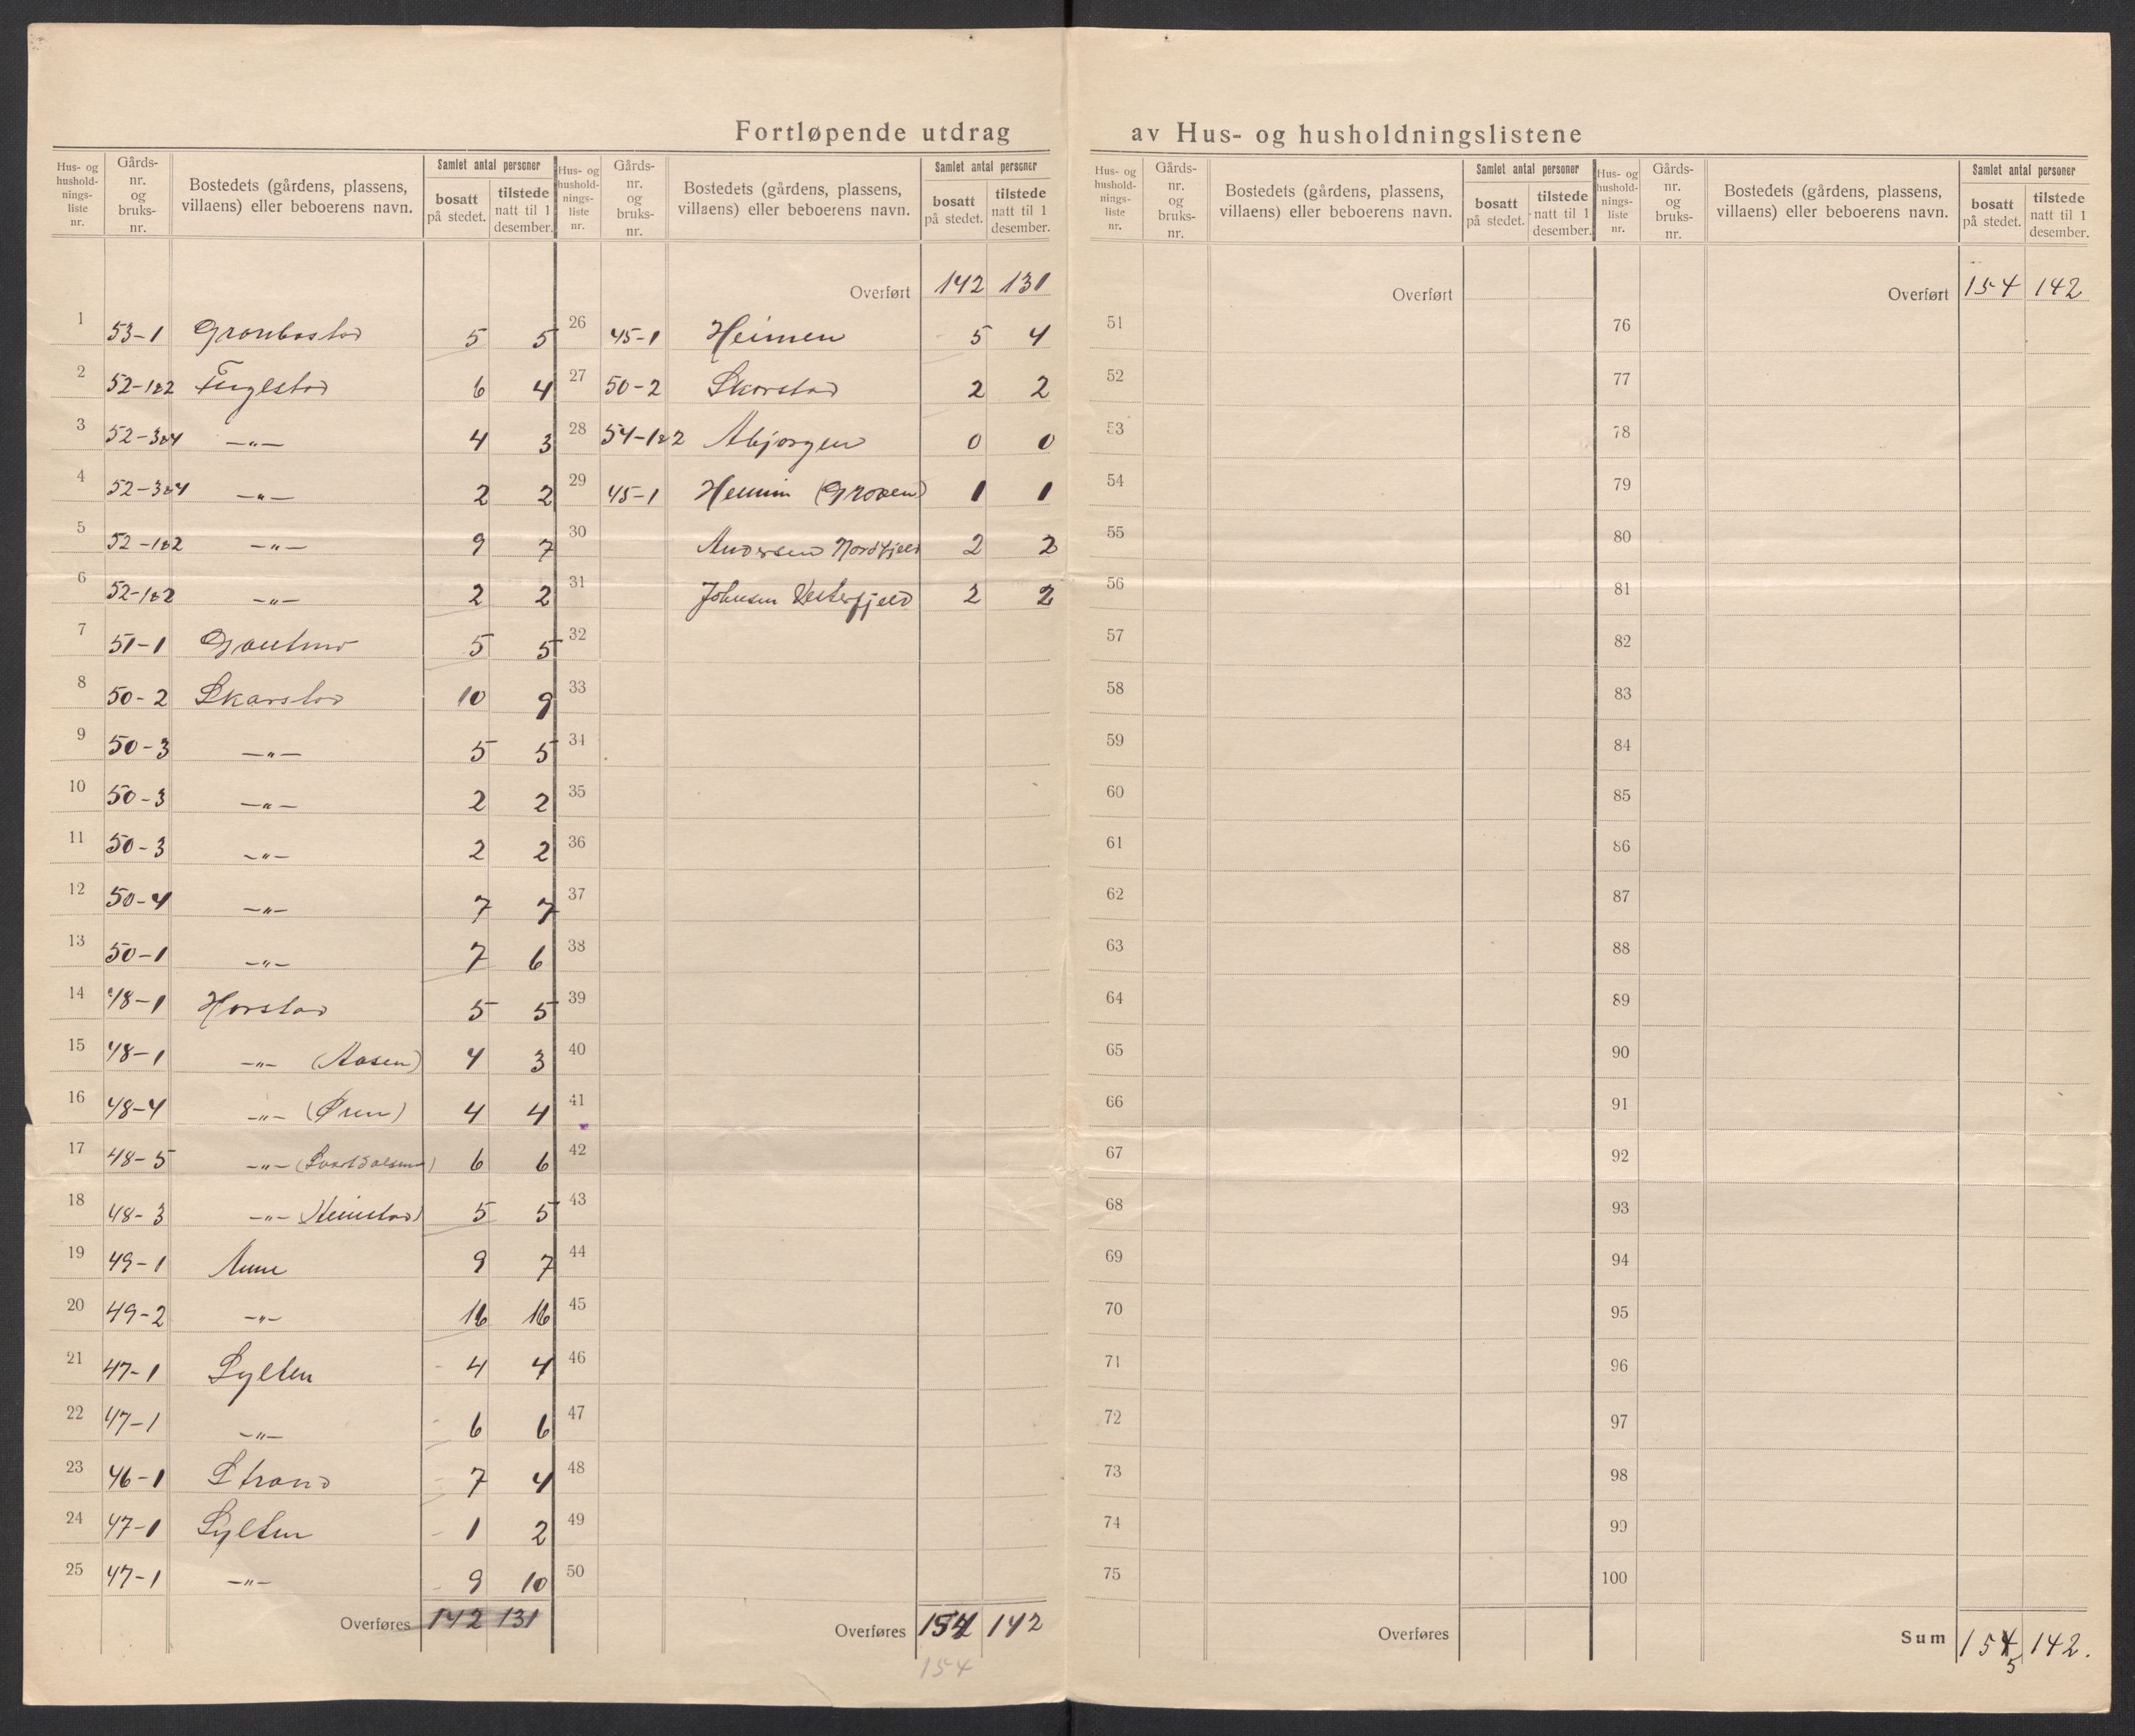 Fortløpende utdrag av Hus- og husholdningslistene
Hus- og hushold-nings-liste nr. | Gårds-nr. og bruks-nr. | Bostedets (gårdens, plassens, villaens) eller beboerens navn. | Samlet antal personer | bosatt på stedet. | tilstede natt til 1 desember.
1 53-1 Gronbostad 5 5
2 52-1&2 Fuglstad 6 4
3 52-3&4 -"- 4 3
4 52-3&4 -"- 2 2
5 52-1&2 -"- 9 7
6 52-1&2 -"- 2 2
7 51-1 5 5
8 50-2 Skarstad 10 9
9 50-3 -"- 5 5
10 50-3 -"- 2 2
11 50-3 -"- 2 2
12 50-4 -"- 7 7
13 50-1 -"- 7 6
14 48-1 Horstad 5 5
15 48-1 -"- (Aasen) 4 3
16 48-4 -"- (Øren) 4 4
17 48-5 -"- 6 6
18 48-3 -"- (Heimstad) 5 5
19 49-1 Aune 9 7
20 49-2 -"- 16 16
21 47-1 Sylten - 4 4
22 47-1 -"- - 6 6
23 46-1 Strand - 7 4
24 47-1 Sylten - 1 2
25 47-1 -"- - 9 10
Overføres 142 131
Hus- og hushold-nings-liste nr. | Gårds-nr. og bruks-nr. | Bostedets (gårdens, plassens, villaens) eller beboerens navn. | Samlet antal personer | bosatt på stedet. | tilstede natt til 1 desember.
Overført 142 131
26 45-1 Heimen - 5 4
27 50-2 Skarstad 2 2
28 54-1&2 Abjørgen 0 0
29 45-1 Heimen (Groven) 1 1
30 Andersen Nordfjeld 2 2
31 Johnsen Vesterfjeld 2 2
32
33
34
35
36
37
38
39
40
41
42
43
44
45
46
47
48
49
50
Overføres 154 142
154
Hus- og hushold-nings-liste nr. | Gårds-nr. og bruks-nr. | Bostedets (gårdens, plassens, villaens) eller beboerens navn. | Samlet antal personer | bosatt på stedet. | tilstede natt til 1 desember.
Overført
51
52
53
54
55
56
57
58
59
60
61
62
63
64
65
66
67
68
69
70
71
72
73
74
75
Overføres
Hus- og hushold-nings-liste nr. | Gårds-nr. og bruks-nr. | Bostedets (gårdens, plassens, villaens) eller beboerens navn. | Samlet antal personer | bosatt på stedet. | tilstede natt til 1 desember.
Overført 154 142
76
77
78
79
80
81
82
83
84
85
86
87
88
89
90
91
92
93
94
95
96
97
98
99
100
Sum 154 142.
5